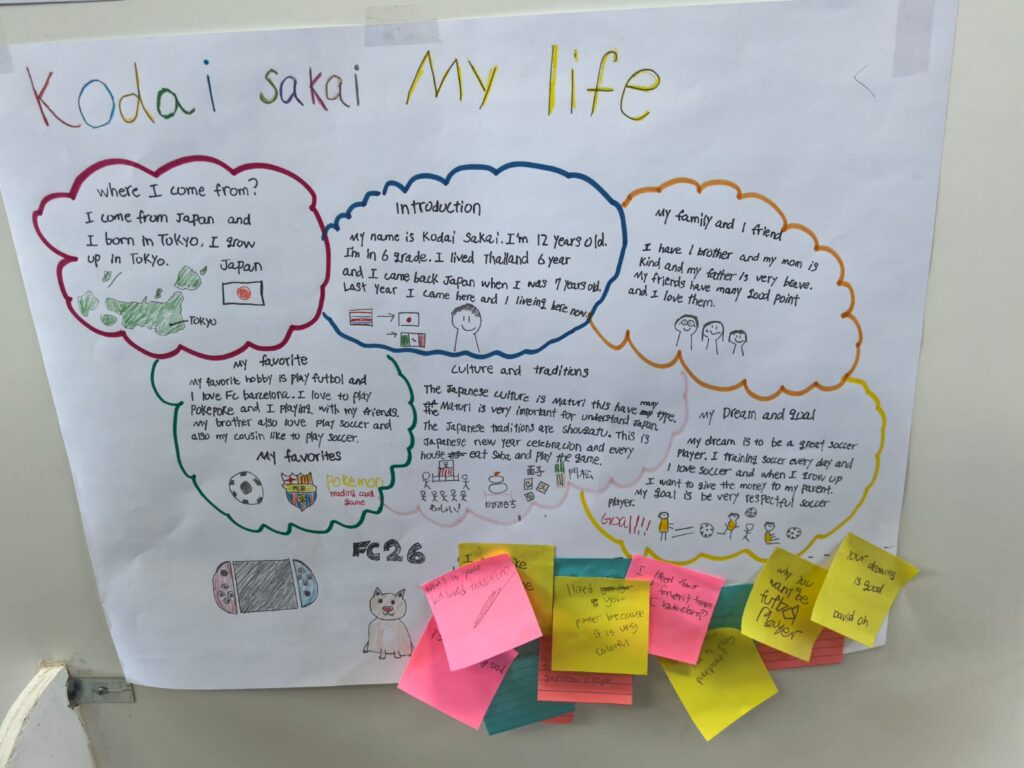 Kodai sakai My life
where I come from?
I come from Japan and
I born in TOKYO. I grow
up in TOKYO.
Japan
TOKYO
Introduction
My name is Kodai Sakai. I'm 12 years old.
I'm in 6 grade. I lived Thailand 6 year
and I came back Japan when I was 7 years old.
Last year I came here and I liveing here now.
My family and I friend
I have 1 brother and my mom is
kind and my father is very brave.
My friends have many good point
and I love them.
My favorite
My favorite hobby is play futbol and
I love Fc barcelona. I love to play
Pokepoke and I playing with my friends.
My brother also love play soccer and
also my cousin like to play soccer.
My favorites
FCB
Pokemon
trading card
game
culture and traditions
The Japanese culture is Maturi this have many type.
The Maturi is very important for understand Japan.
The Japanese traditions are shougatu. This is
Japanese new year celebration and every
house eat Soba and play the game.
わっしい!
かがみもち
面子
門松
My Dream and goal
My dream is to be a great soccer
Player. I training soccer every day and
I love soccer and when I grow up
I want to give the money to my parent.
My goal is be very respectful soccer
player.
GOal!!!
FC26
what is your
loved tradition?
I liked
your
poster because
it is very
colorful
I
that
favorit team
why you
want be
futbol
player
Your drawing
is good
david oh